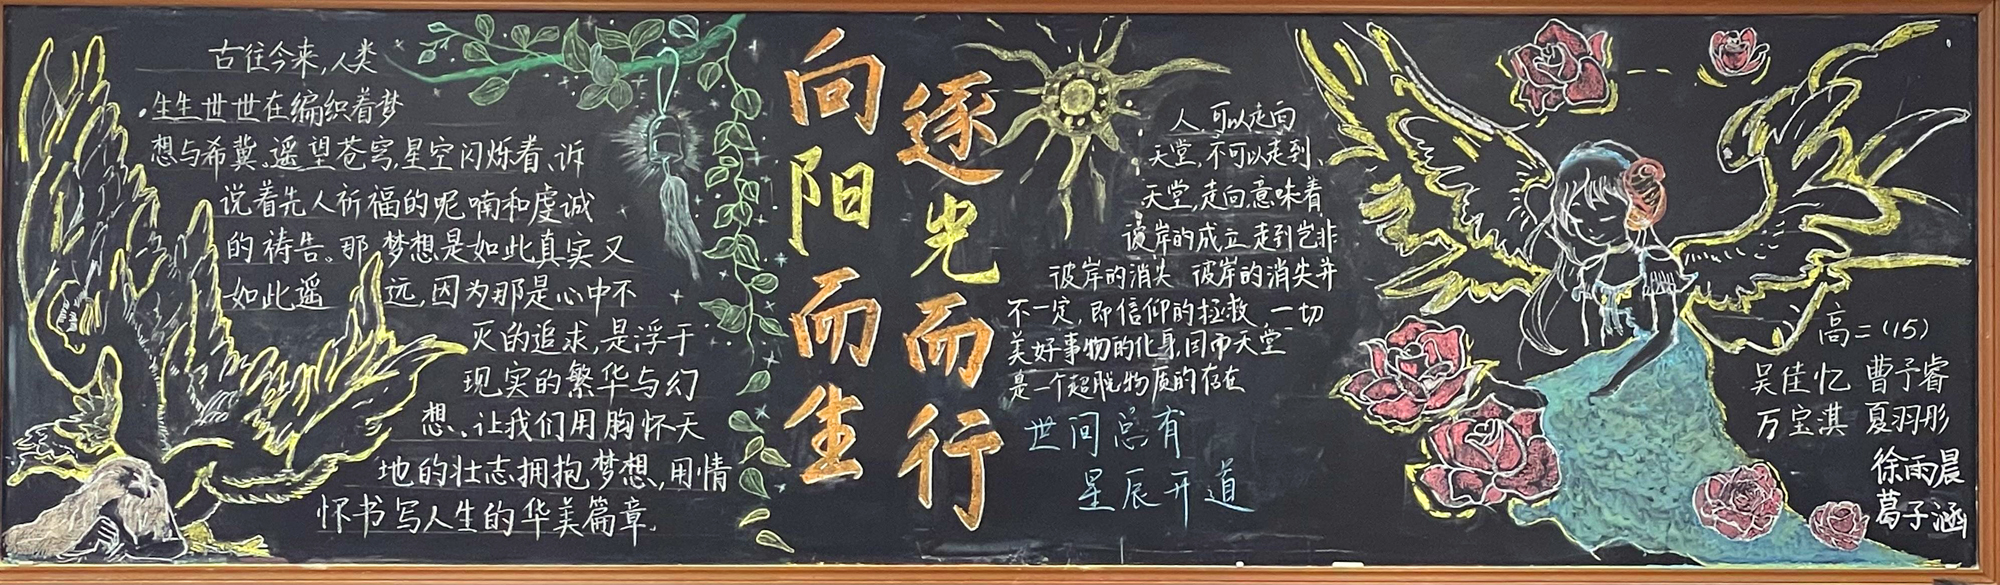 古往今来,人类
生生世世在编织着梦
想与希冀。遥望苍穹,星空闪烁着、诉
说着先人祈福的呢喃和虔诚
的祷告。那梦想是如此真实又
如此遥远,因为那是心中不
灭的追求,是浮于
现实的繁华与幻
想、让我们用胸怀天
地的壮志拥抱梦想,用情
怀书写人生的华美篇章。
向阳而生
逐光而行
人可以走向
天堂,不可以走到、
天堂,走向意味着
彼岸的成立 走到岂非
彼岸的消失 彼岸的消失并
不一定,即信仰的拯救 一切
美好事物的化身,因而天堂
是一个超脱物质的存在
世间总有
星辰开道
高二(15)
吴佳忆 曹予睿
万宝淇 夏羽彤
徐雨晨
葛子涵